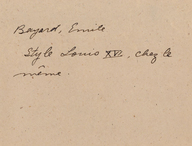 Bayard, Emile
Style Louis XVI, chez le
même.